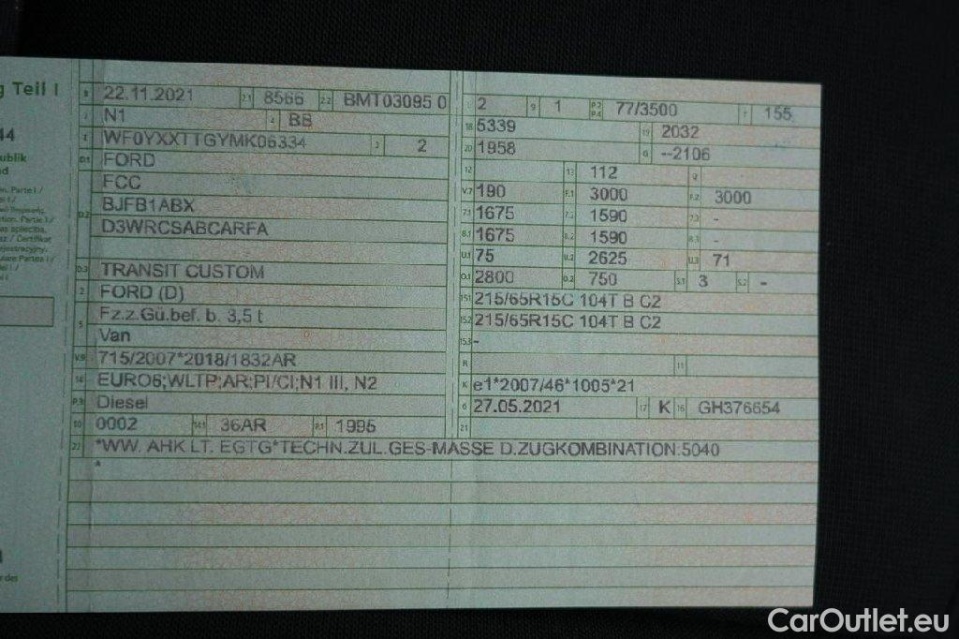 g Teil I
B 22.11.2021 2.1 8566 2.2 BMT03095 0
J N1 4 BB
E WF0YXXTTGYMK06334 3 2
D.1 FORD
FCC
D.2 BJFB1ABX
D3WRCSABCARFA
D.3 TRANSIT CUSTOM
2 FORD (D)
5 Fz.z.Gü.bef. b. 3,5 t
Van
V.9 715/2007*2018/1832AR
14 EURO6;WLTP;AR;PI/CI;N1 III, N2
P.3 Diesel
10 0002 14.1 36AR P.1 1995
22 *WW. AHK LT. EGTG*TECHN.ZUL.GES-MASSE D.ZUGKOMBINATION:5040
*
L 2 9 1 P.2 P.4 77/3500 T 155
18 5339 19 2032
20 1958 G --2106
12 13 112 Q
V.7 190 F.1 3000 F.2 3000
7.1 1675 7.2 1590 7.3 -
8.1 1675 8.2 1590 8.3 -
U.1 75 U.2 2625 U.3 71
O.1 2800 O.2 750 S.1 3 S.2 -
15.1 215/65R15C 104T B C2
15.2 215/65R15C 104T B C2
15.3 -
R 11
K e1*2007/46*1005*21
6 27.05.2021 17 K 16 GH376654
21
CarOutlet.eu